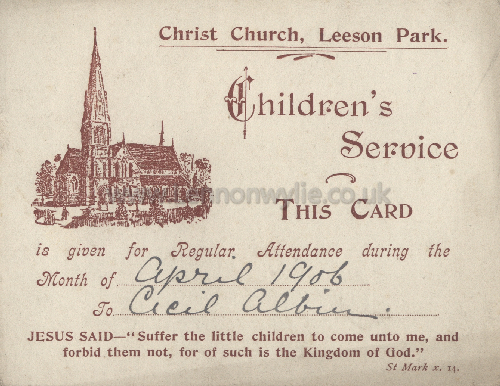 Christ Church, Leeson Park.
Children's
Service
THIS CARD
is given for Regular Attendance during the
Month of April 1906
To Cecil Albin.
JESUS SAID—"Suffer the little children to come unto me, and
forbid them not, for of such is the Kingdom of God."
St Mark x. 14.